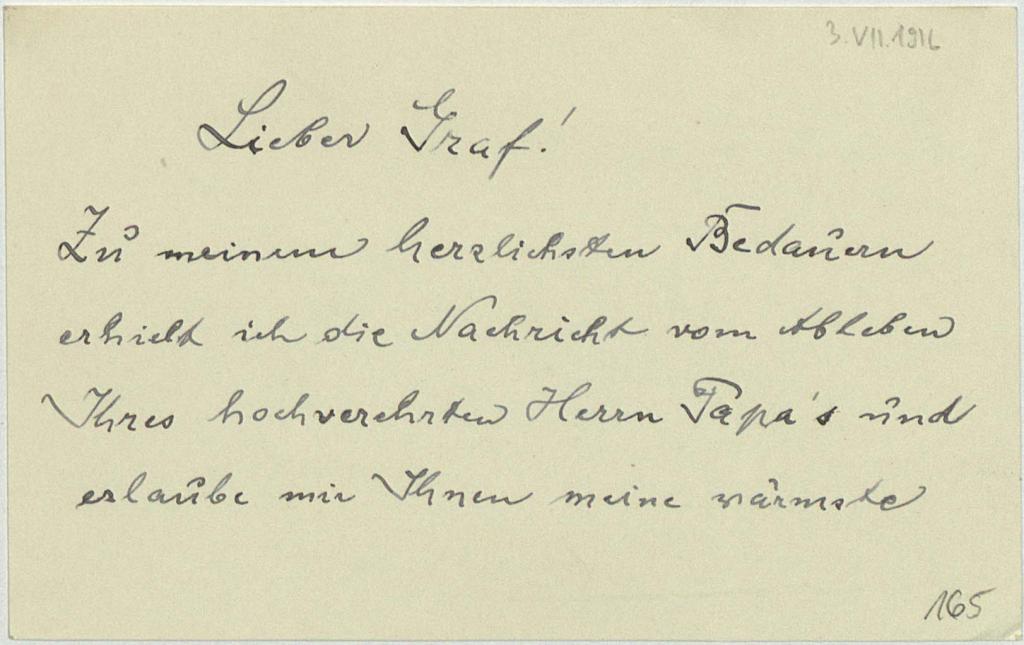 3.VII.1916
Lieber Graf!
Zu meinem herzlichsten Bedauern
erhielt ich die Nachricht vom Ableben
Ihres hochverehrten Herrn Papa's und
erlaube mir Ihnen meine wärmste
165